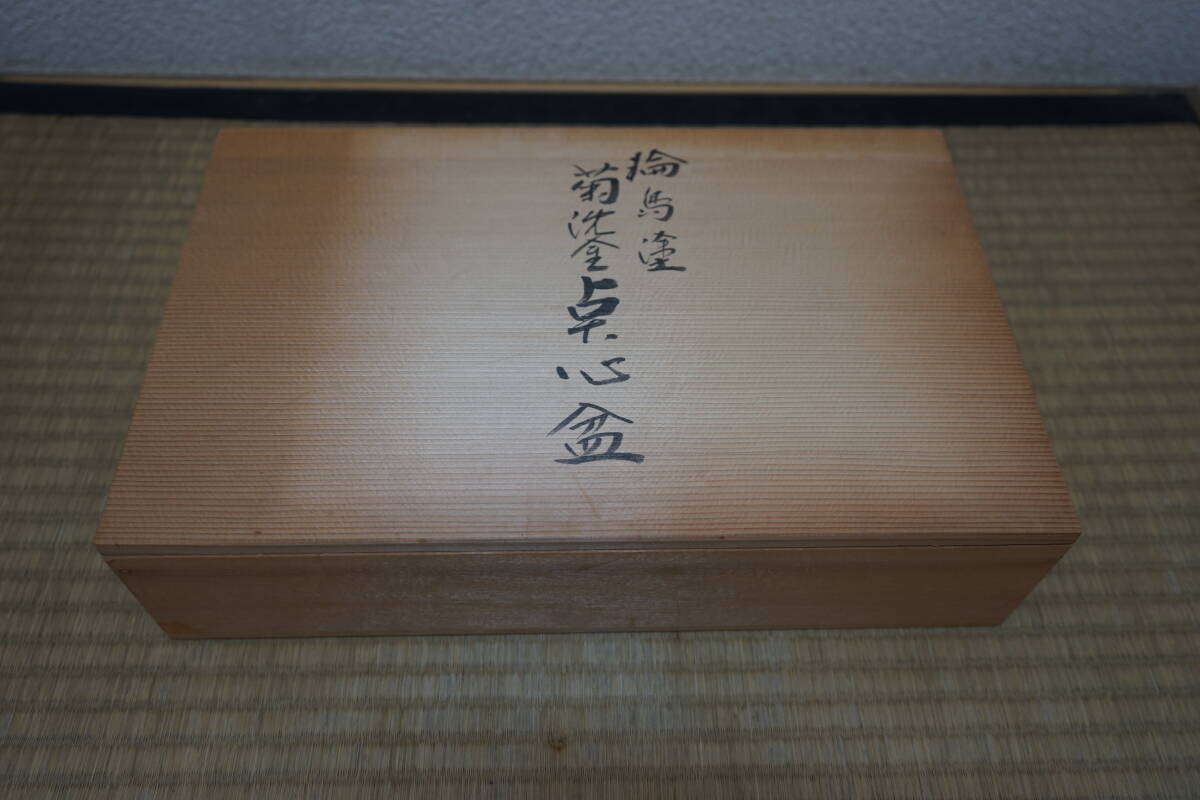 輪島塗
菊沈金点心盆